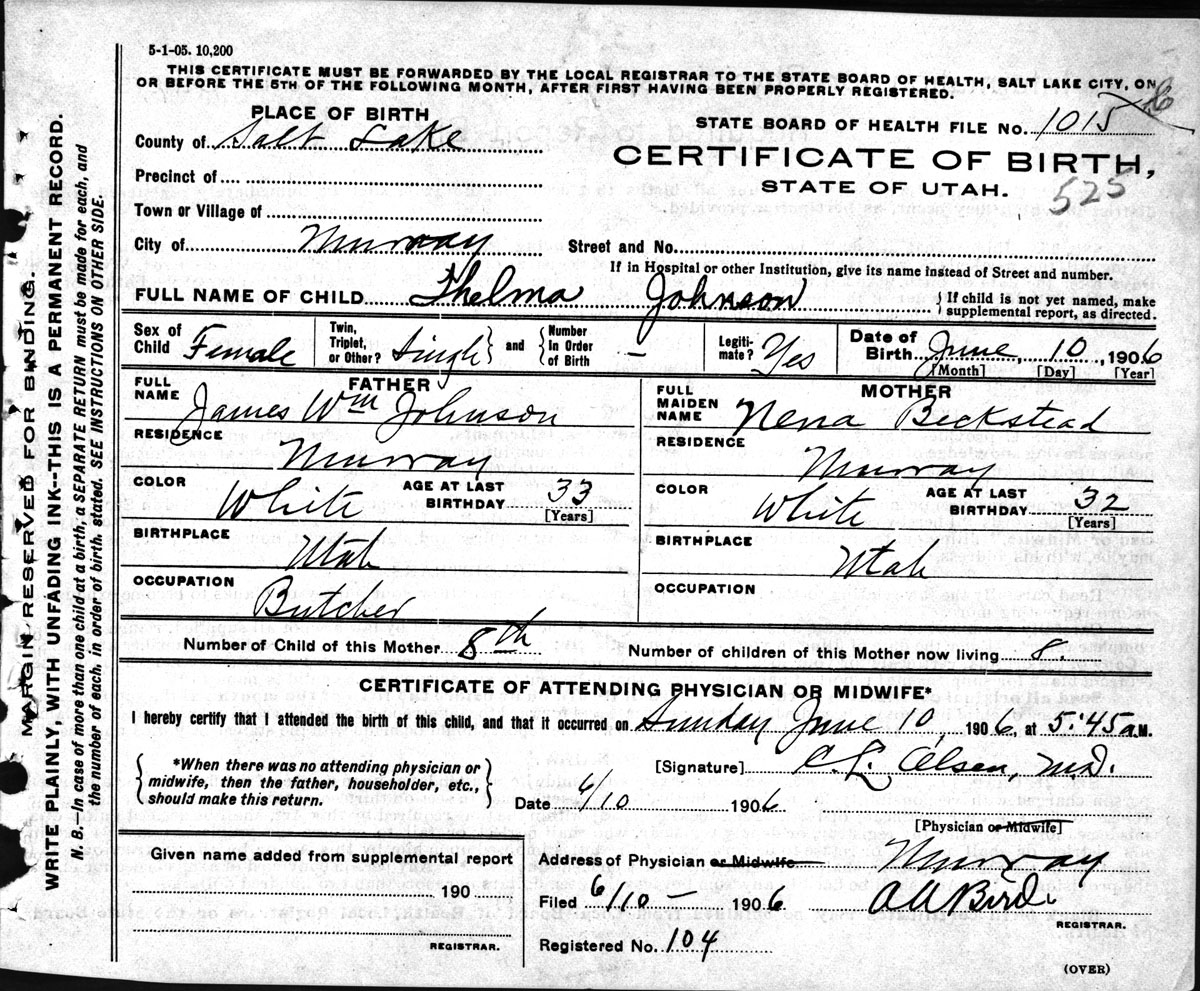 5-1-05. 10,200
THIS CERTIFICATE MUST BE FORWARDED BY THE LOCAL REGISTRAR TO THE STATE BOARD OF HEALTH, SALT LAKE CITY, ON
OR BEFORE THE 5TH OF THE FOLLOWING MONTH, AFTER FIRST HAVING BEEN PROPERLY REGISTERED.
PLACE OF BIRTH
County of Salt Lake
Precinct of
Town or Village of
City of Murray
STATE BOARD OF HEALTH FILE No. 1015
CERTIFICATE OF BIRTH,
STATE OF UTAH.
525
Street and No.
If in Hospital or other Institution, give its name instead of Street and number.
FULL NAME OF CHILD Thelma Johnson { If child is not yet named, make
supplemental report, as directed.
Sex of Child Female
Twin, Triplet, or Other? Single } and { Number In Order of Birth –
Legiti-mate? Yes
Date of Birth June 10, 1906
[Month] [Day] [Year]
FATHER
FULL NAME James Wm Johnson
RESIDENCE Murray
COLOR White AGE AT LAST BIRTHDAY 33
[Years]
BIRTHPLACE Utah
OCCUPATION Butcher
MOTHER
FULL MAIDEN NAME Nena Beckstead
RESIDENCE Murray
COLOR White AGE AT LAST BIRTHDAY 32
[Years]
BIRTHPLACE Utah
OCCUPATION
Number of Child of this Mother 8th Number of children of this Mother now living 8.
CERTIFICATE OF ATTENDING PHYSICIAN OR MIDWIFE*
I hereby certify that I attended the birth of this child, and that it occurred on Sunday June 10, 1906, at 5:45 a.M.
{ *When there was no attending physician or
midwife, then the father, householder, etc.,
should make this return. }
[Signature] C. L. Olsen, M.D.
Date 6/10 1906
[Physician or Midwife]
Given name added from supplemental report
190
REGISTRAR.
Address of Physician or Midwife Murray
Filed 6/10 – 1906 A A Bird
REGISTRAR.
Registered No. 104
(OVER)
MARGIN RESERVED FOR BINDING.
WRITE PLAINLY, WITH UNFADING INK--THIS IS A PERMANENT RECORD.
N. B.—In case of more than one child at a birth, a SEPARATE RETURN must be made for each, and
the number of each, in order of birth, stated. SEE INSTRUCTIONS ON OTHER SIDE.